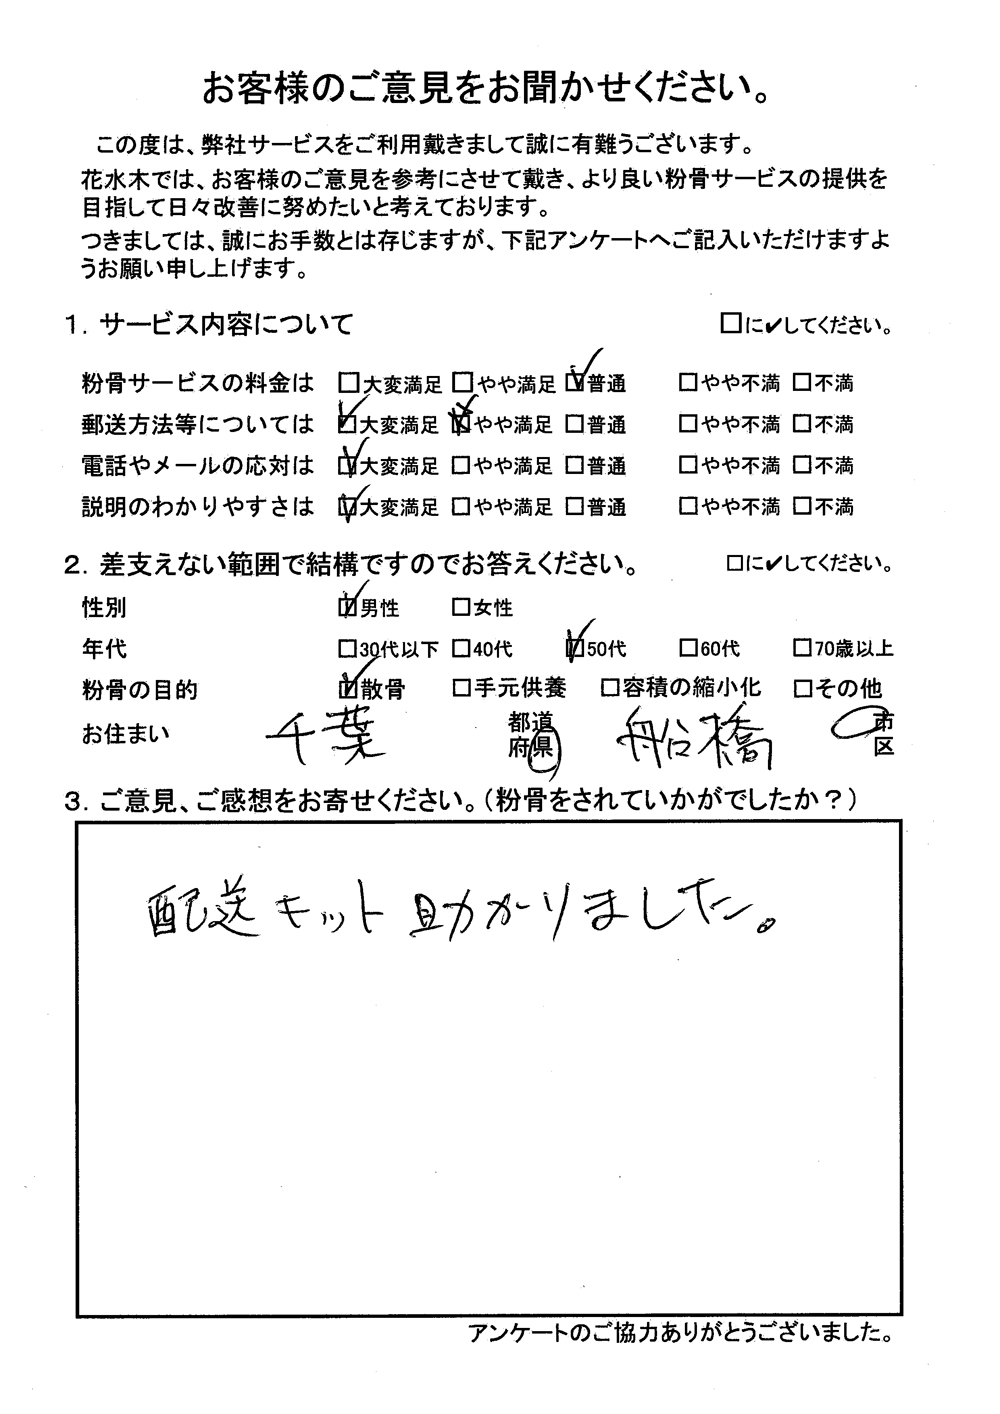 お客様のご意見をお聞かせください。
この度は、弊社サービスをご利用戴きまして誠に有難うございます。
花水木では、お客様のご意見を参考にさせて戴き、より良い粉骨サービスの提供を
目指して日々改善に努めたいと考えております。
つきましては、誠にお手数とは存じますが、下記アンケートへご記入いただけますよ
うお願い申し上げます。
1. サービス内容について □に✔してください。
粉骨サービスの料金は □大変満足 □やや満足 ☑普通 □やや不満 □不満
郵送方法等については ☑大変満足 ☑やや満足 □普通 □やや不満 □不満
電話やメールの応対は ☑大変満足 □やや満足 □普通 □やや不満 □不満
説明のわかりやすさは ☑大変満足 □やや満足 □普通 □やや不満 □不満
2. 差支えない範囲で結構ですのでお答えください。 □に✔してください。
性別 ☑男性 □女性
年代 □30代以下 □40代 ☑50代 □60代 □70歳以上
粉骨の目的 ☑散骨 □手元供養 □容積の縮小化 □その他
お住まい 千葉 都道府県 船橋 市区
3. ご意見、ご感想をお寄せください。(粉骨をされていかがでしたか?)
配送キット助かりました。
アンケートのご協力ありがとうございました。